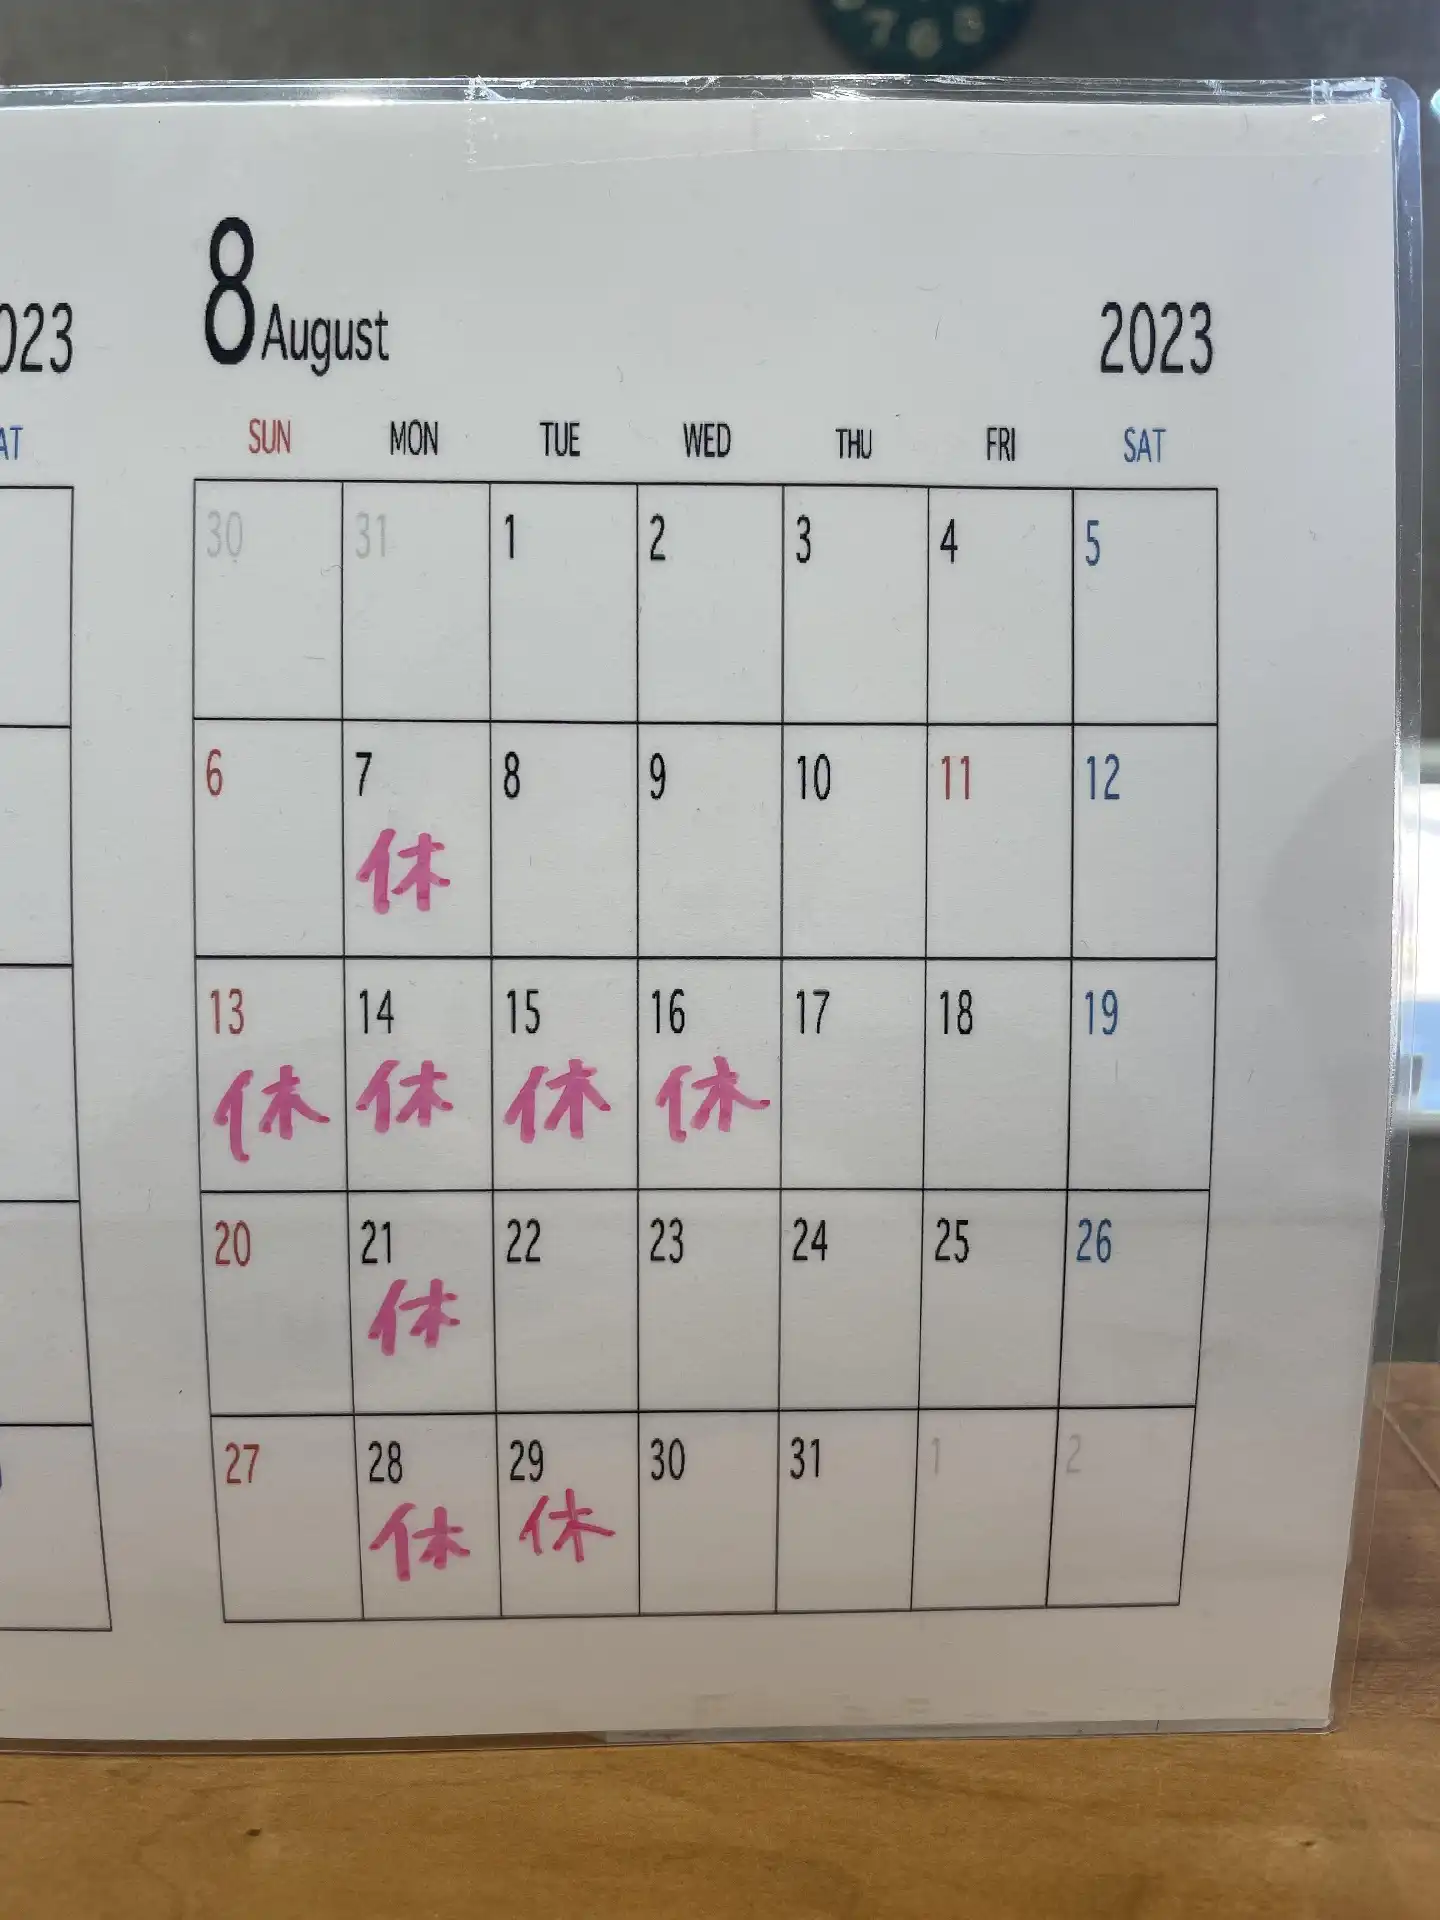 7 6 5
023
8 August 2023
AT
SUN MON TUE WED THU FRI SAT
30 31 1 2 3 4 5
6 7 8 9 10 11 12
休
13 14 15 16 17 18 19
休 休 休 休
20 21 22 23 24 25 26
休
27 28 29 30 31 1 2
休 休